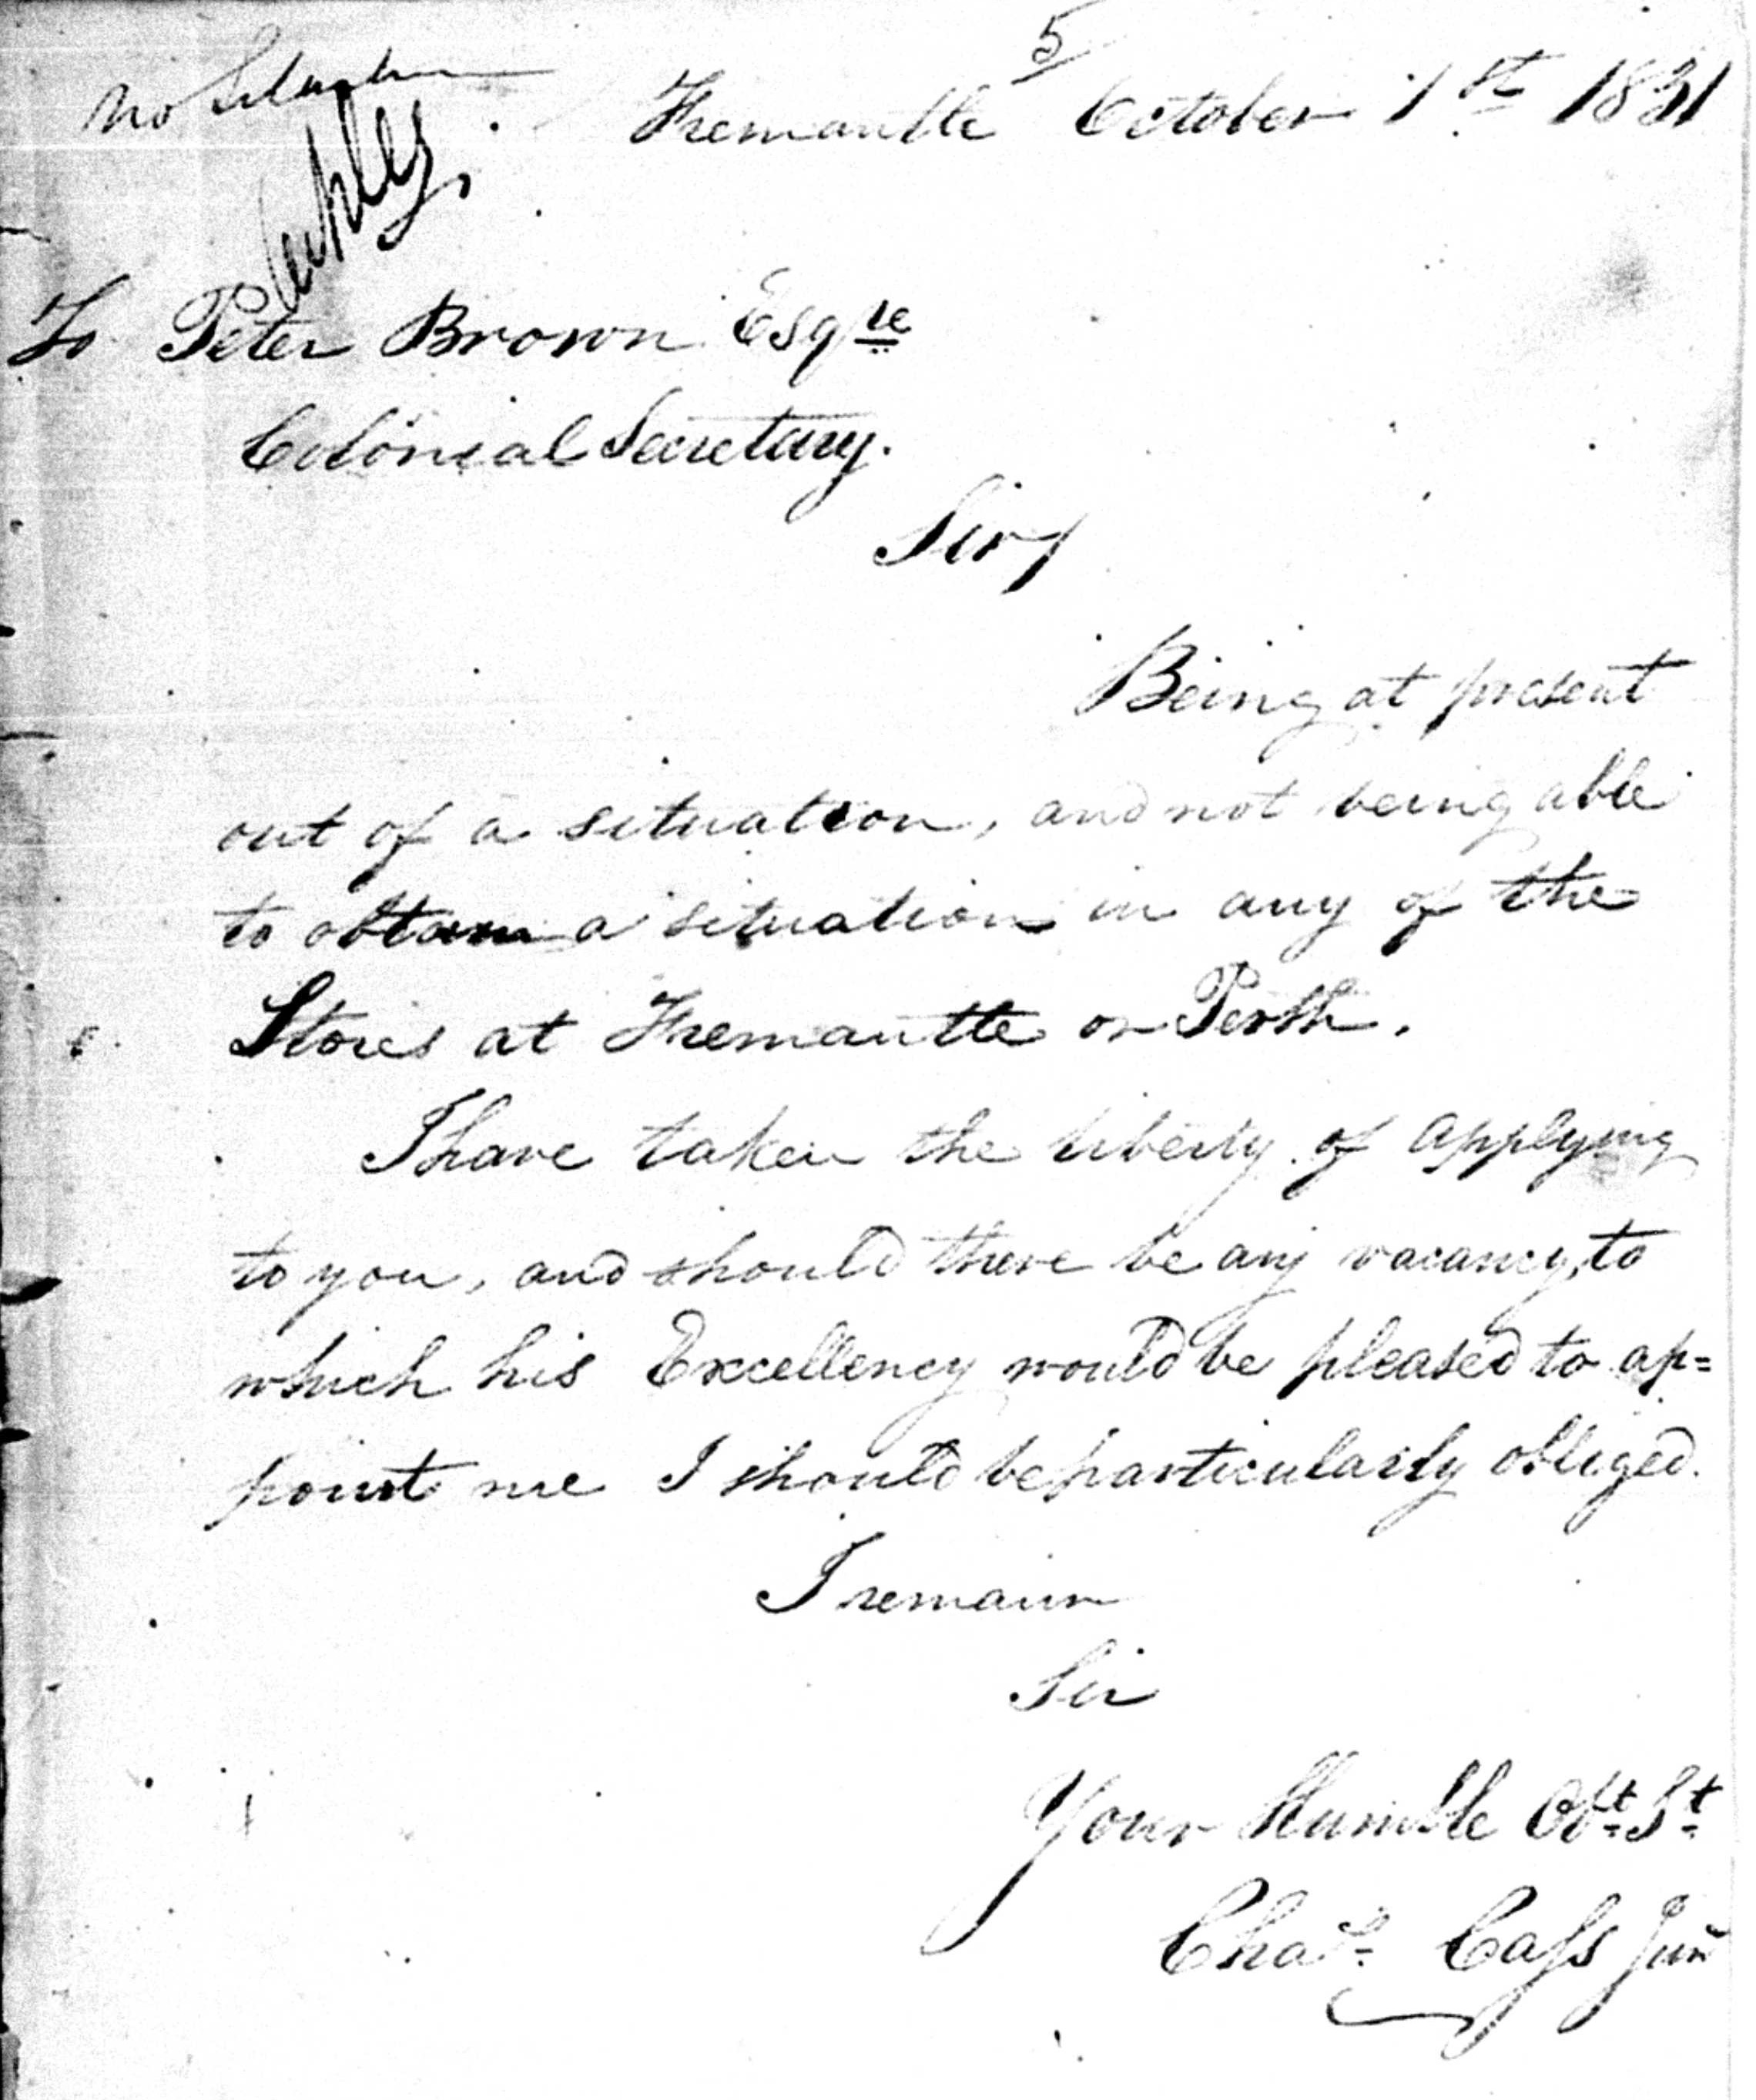 5
No Situation
Fremantle October 1st 1831
To Peter Brown Esqre
Colonial Secretary.
Sir/
Being at present
out of a situation, and not being able
to obtain a situation in any of the
Stores at Fremantle or Perth.
I have taken the liberty of applying
to you, and should there be any vacancy, to
which his Excellency would be pleased to ap=
point me I should be particularly obliged.
I remain
Sir
Your Humble Obt St
Chas Cass Junr